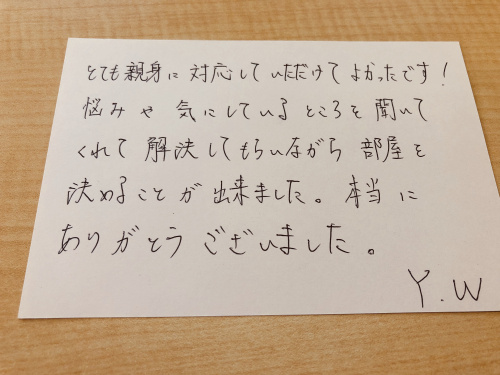 とても親身に対応していただけてよかったです!
悩みや気にしているところを聞いて
くれて解決してもらいながら部屋を
決めることが出来ました。本当に
ありがとうございました。
Y.W